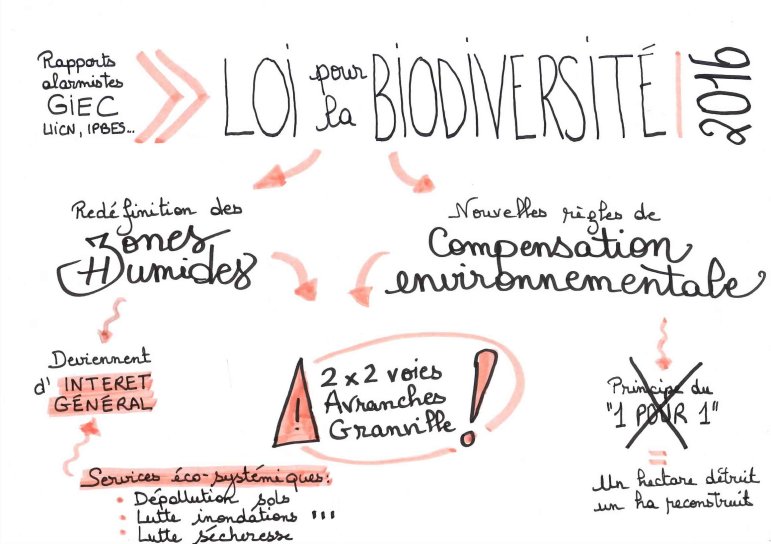 Rapports
alarmistes
GIEC
UICN, IPBES...
LOI pour la BIODIVERSITÉ 2016
Redéfinition des
Zones
Humides
Nouvelles règles de
Compensation
environnementale
Deviennent
d'INTERET
GÉNÉRAL
! 2x2 voies !
Avranches
Granville
Principe du
"1 POUR 1"
Services éco-systémiques:
• Dépollution sols
• Lutte inondations !!!
• Lutte sécheresse
Un hectare détruit
un ha reconstruit